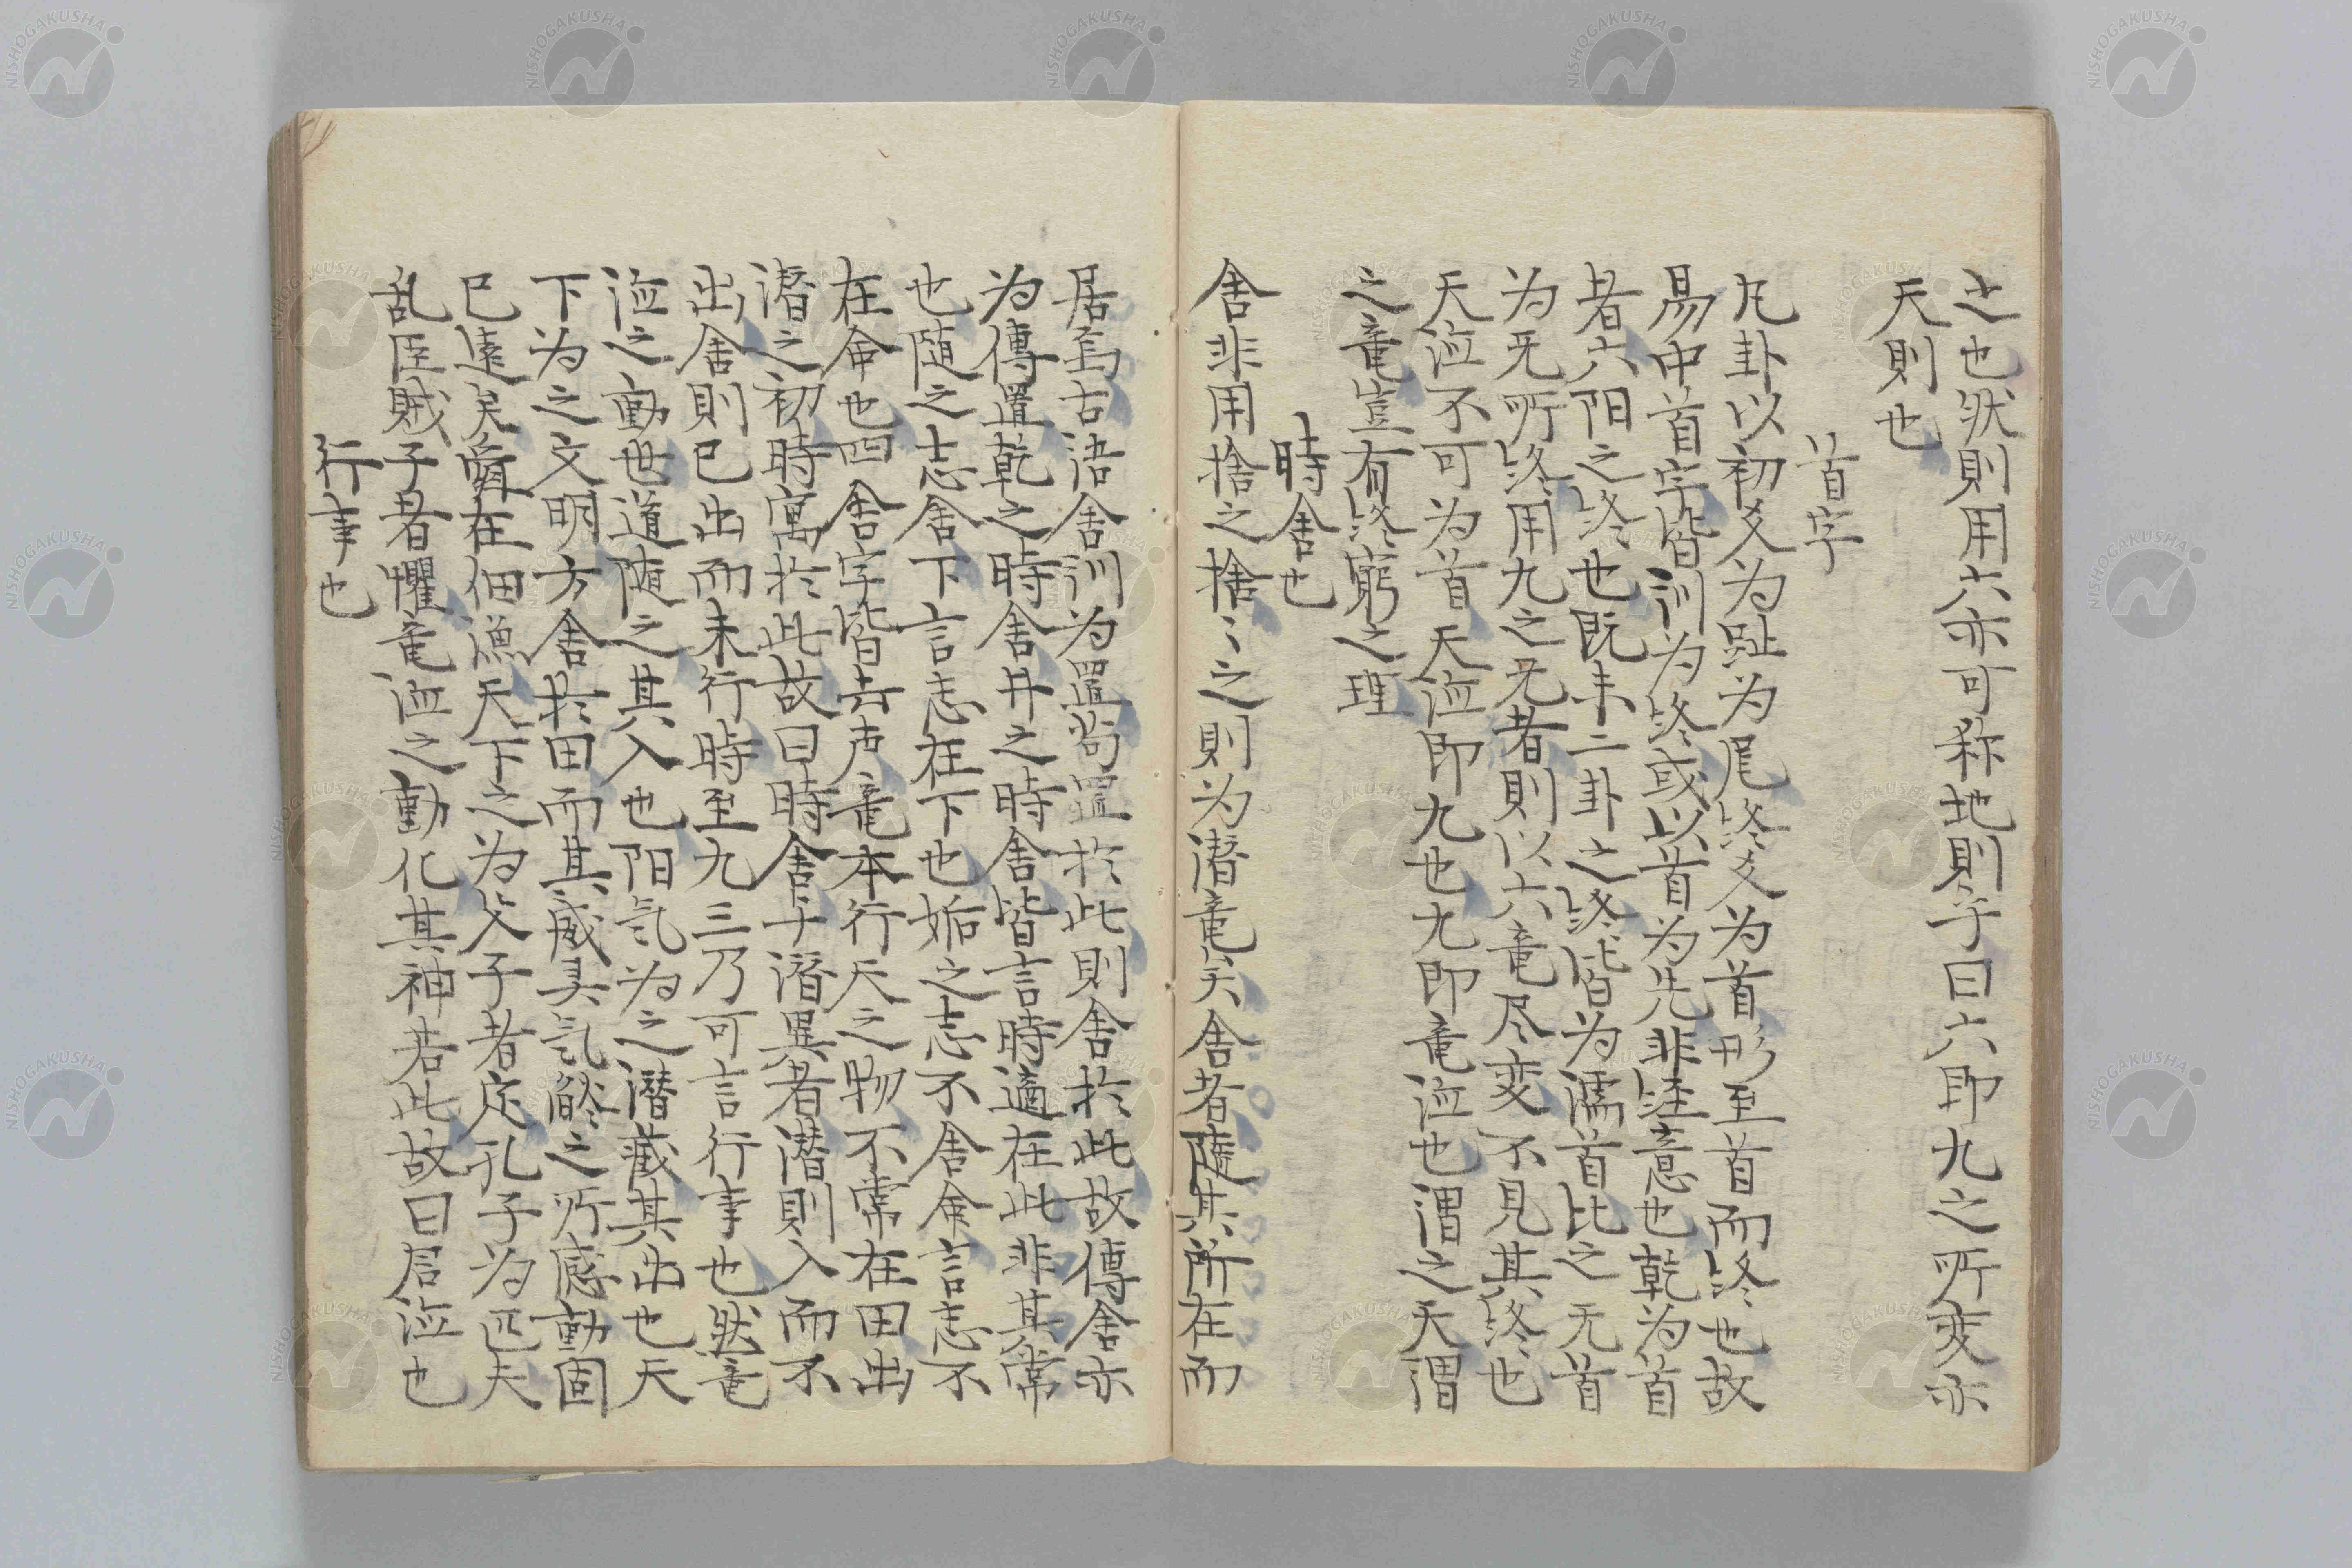 之也然則用六亦可称地則乎曰六即九之所変亦
天則也
首字
凡卦以初爻為趾為尾終爻為首形至首而終也故
易中首字皆训為終或以首為先非经意也乾為首
者六阳之終也既未二卦之終皆為濡首比之无首
為无所終用九之无者則以六竜尽変不見其終也
天徳不可為首天徳即九也九即竜徳也謂之天謂
之竜豈有終窮之理
時舍也
舍非用捨之捨〻之則為潜竜矣舍者随其所在而
居焉古语舍训為置苟置於此則舍於此故傳舍亦
為傳置乾之時舍井之時舍皆言時適在此非其常
也随之志舍下言志在下也姤之志不舍命言志不
在命也四舍字皆去声竜本行天之物不常在田出
潜之初時寓於此故曰時舍于潜異者潜則入而不
出舍則已出而未行時至九三乃可言行事也然竜
徳之動世道随之其入也阳気為之潜蔵其出也天
下為之文明方舍於田而其威灵気燄之所感動固
已遠矣舜在佃漁天下之為父子者定孔子為匹夫
乱臣賊子者懼竜徳之動化其神若此故曰君徳也
行事也